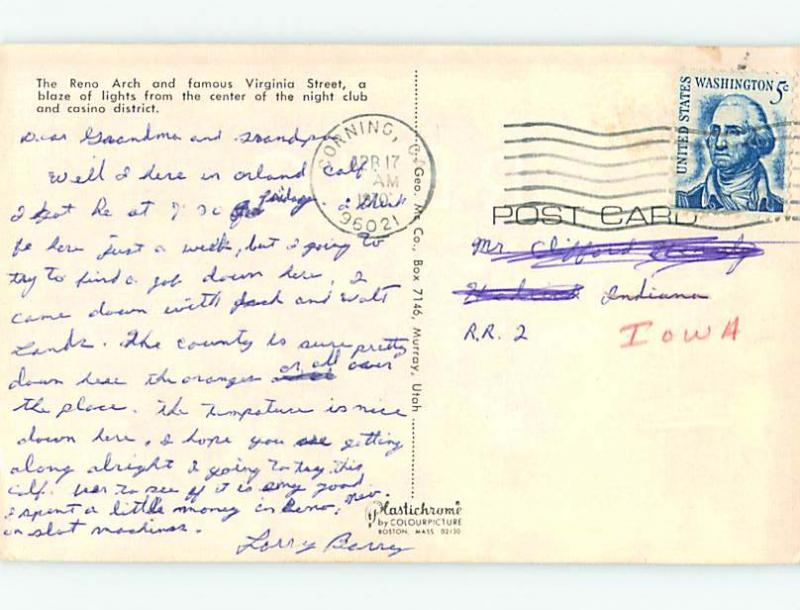 The Reno Arch and famous Virginia Street, a
blaze of lights from the center of the night club
and casino district.
Dear Grandma and Grandpa
Well I here in orland Calf.
I got he at 7 30 friday. I
be here just a week, but I going to
try to find a job down here, I
came down with Jack and Walt
Lands. The country is sure pretty
down here the oranges or all over
the place. The Tempature is nice
down here, I hope you are getting
along alright I going to try this
Calf. out to see if it is any good
I spent a little money in Reno, Nev.
on slot machines.
Larry Berry
CORNING, C
APR 17
AM
1970
96021
Geo. Mc Co., Box 7146, Murray, Utah
Plastichrome
by COLOURPICTURE
BOSTON, MASS. 02130
UNITED STATES
WASHINGTON 5c
POST CARD
Mr Clifford
Indiana
R.R. 2
IOWA